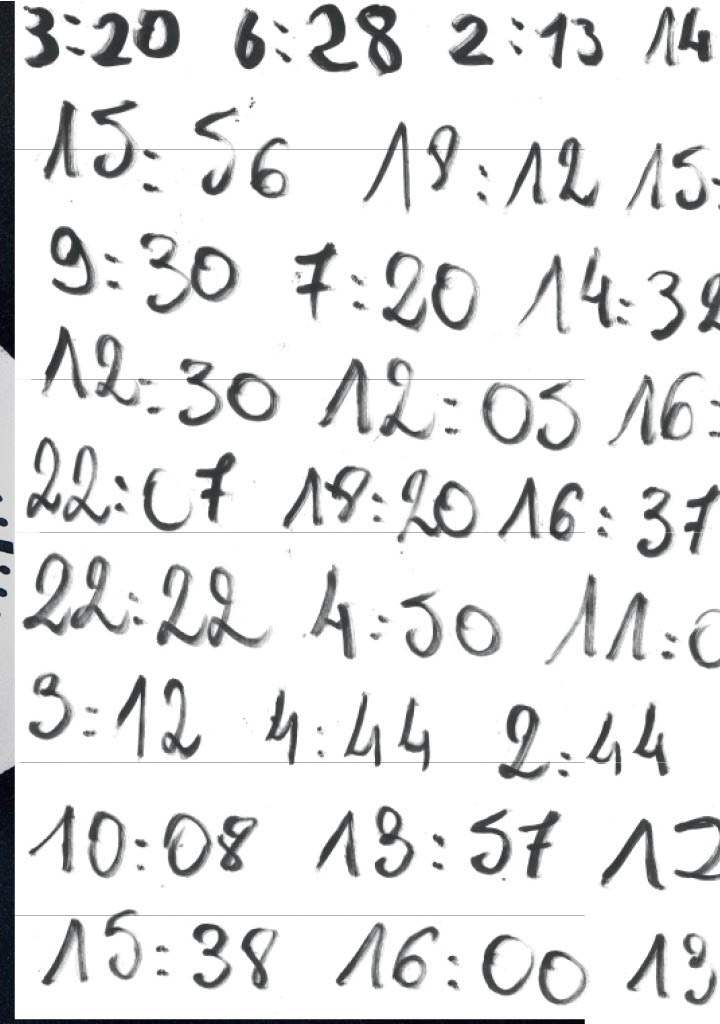 3:20 6:28 2:13 14
15:56 18:12 15:
9:30 7:20 14:32
12:30 12:05 16:
22:07 18:20 16:37
22:22 4:50 11:0
3:12 4:44 2:44
10:08 13:57 12
15:38 16:00 13